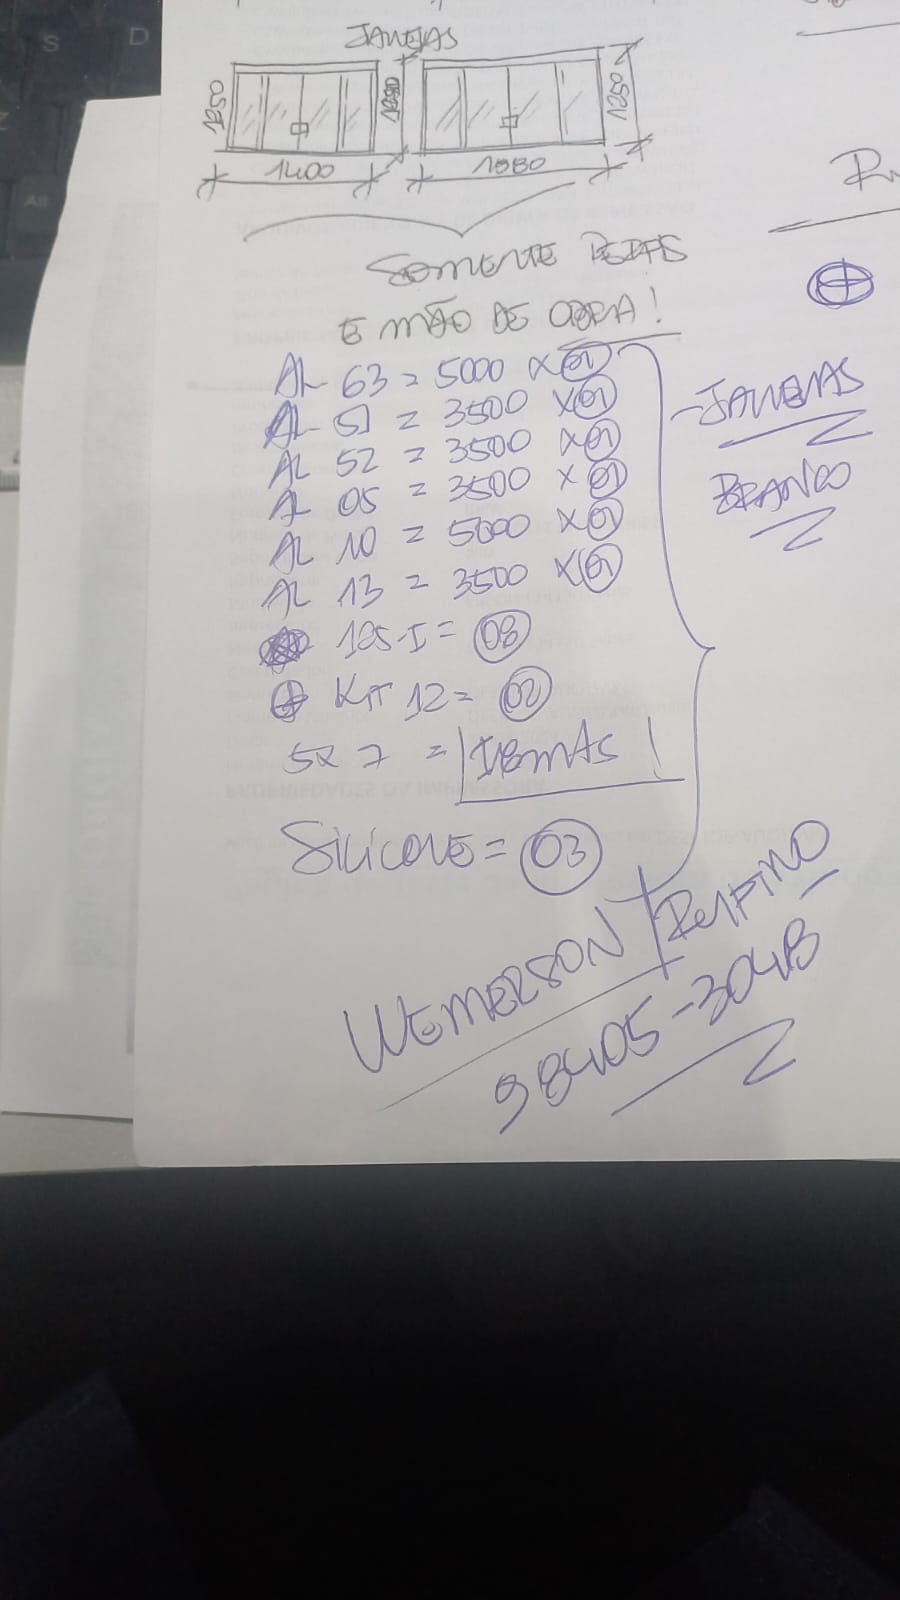 JANELAS
1250
1400
1250
1980
1250
SOMENTE PERFIS
E MÃO DE OBRA!
AL 63 = 5000 X 01
AL 51 = 3500 X 01
AL 52 = 3500 X 01
AL 05 = 3500 X 01
AL 10 = 5000 X 01
AL 13 = 3500 X 01
125-I = 08
KIT 12 = 02
5X7 =
SILICONE = 03
- JANELAS
BRANCO
WEMERSON / RUFINO
98405-3048